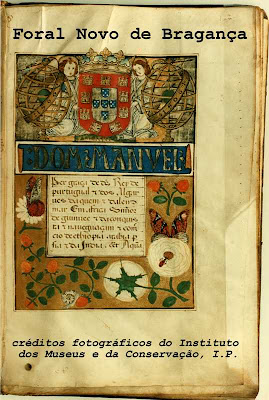 Foral Novo de Bragança
DOM:MANVEL
Per graça de ds Rey de
portugual & dos Algar
ves daquem & daleem
mar Em africa Senhor
de guinee & da conquis
ta & navegaçam & com
cio de ethiopia arabia p
sia & da India
créditos fotográficos do Instituto
dos Museus e da Conservação, I.P.